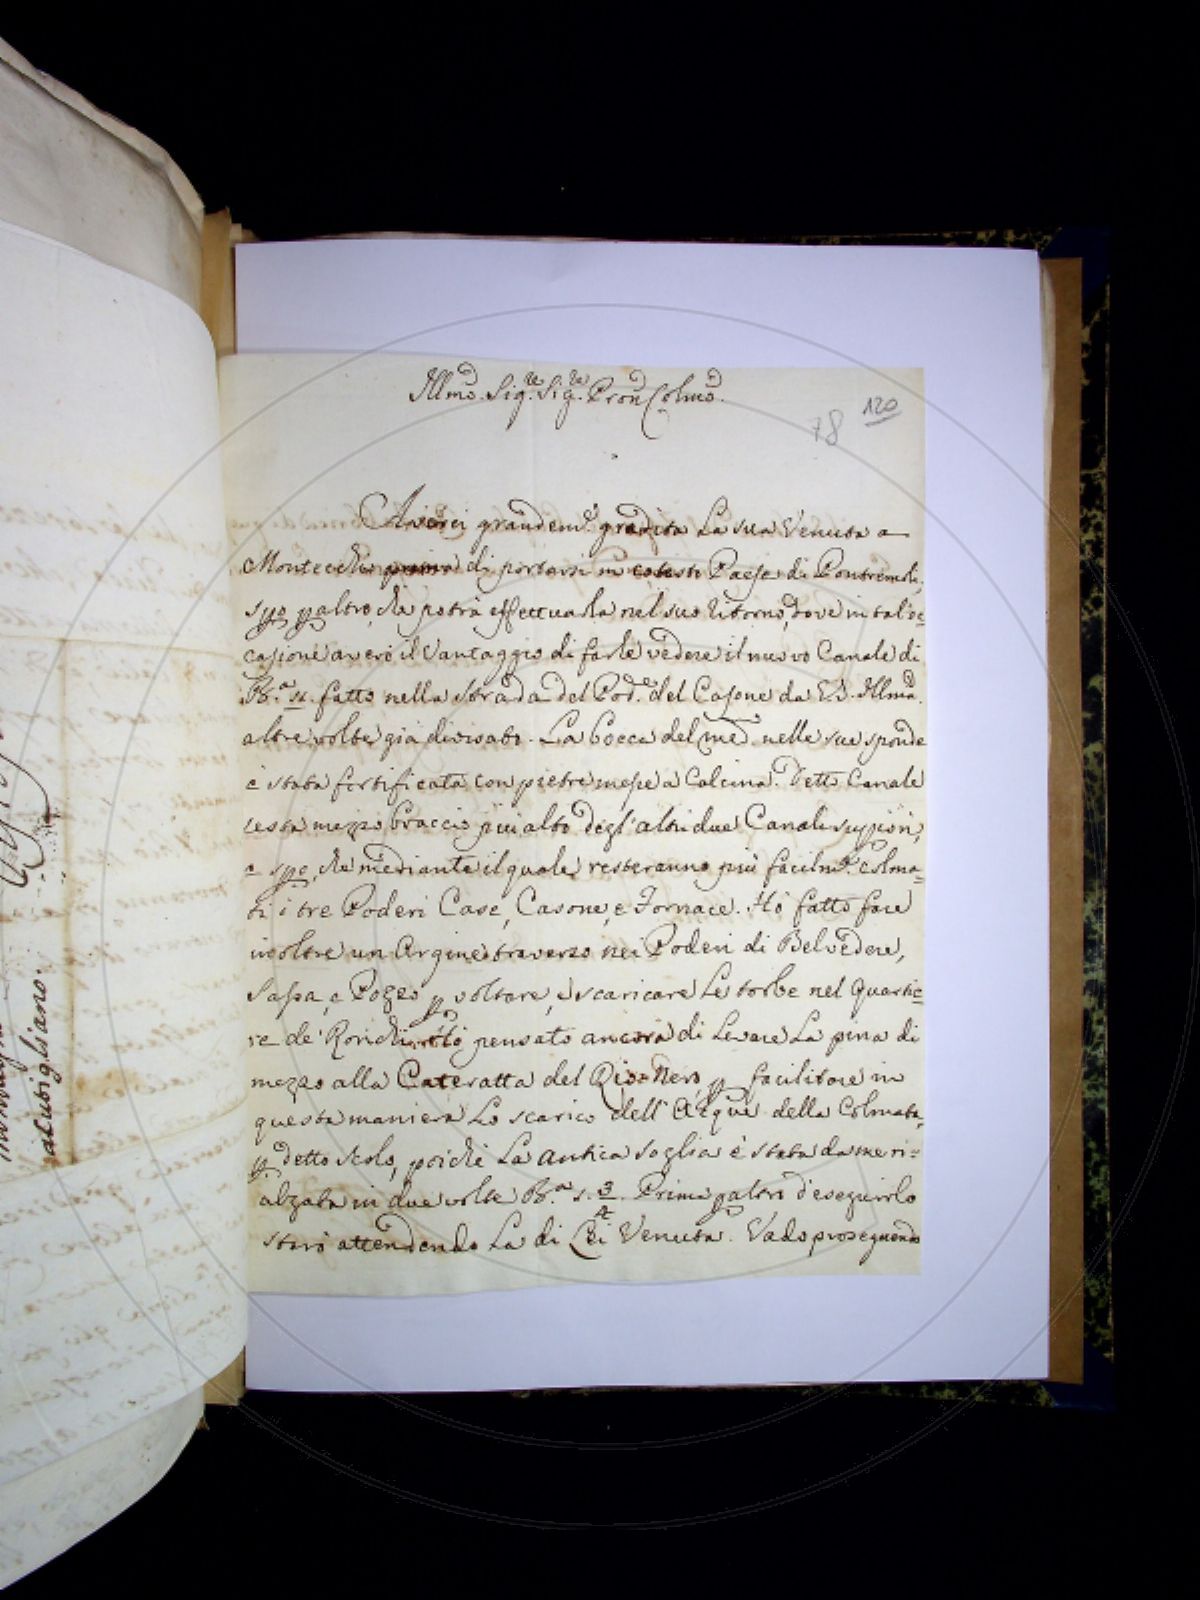 Illmo. Sig.re Sig.re Pron Colmo.
78 120
Averei grandeme. gradita La sua Venuta a
Montecchio prima di portarsi in cotesto Paese di Pontremoli,
spo paltro, che potrà effettuarla nel suo ritorno, dove in tal'oc=
casione averò il Vantaggio di farle vedere il nuovo Canale di
Ba. 11. fatto nella Strada del Pode. del Casone da VS. Illma.
altre volte già divisato. La bocca del med. nelle sue sponde
è stata fortificata con pietre messe a Calcina. Detto Canale
resta mezzo braccio più alto degl'altri due Canali suppiori,
e spo, che mediante il quale resteranno più facilme. colma=
ti i tre Poderi Case, Casone, e Fornace. Hò fatto fare
inoltre un Argine traverso nei Poderi di Belvedere,
Sassa, e Pogeo p voltare, e scaricare Le torbe nel Quartie=
re de' Ronchi, e hò pensato ancora di Levare La pina di
mezzo alla Cateratta del Rio Nero, p facilitare in
questa maniera Lo scarico dell'Acque della Colmata,
p. detto Scolo, poiche La antica Soglia è stata da me ri=
alzata in due volte Ba. s. 3/4. Prima paltro d'eseguirlo
starò attendendo La di Lei Venuta. Vado proseguendo
alutigliano.